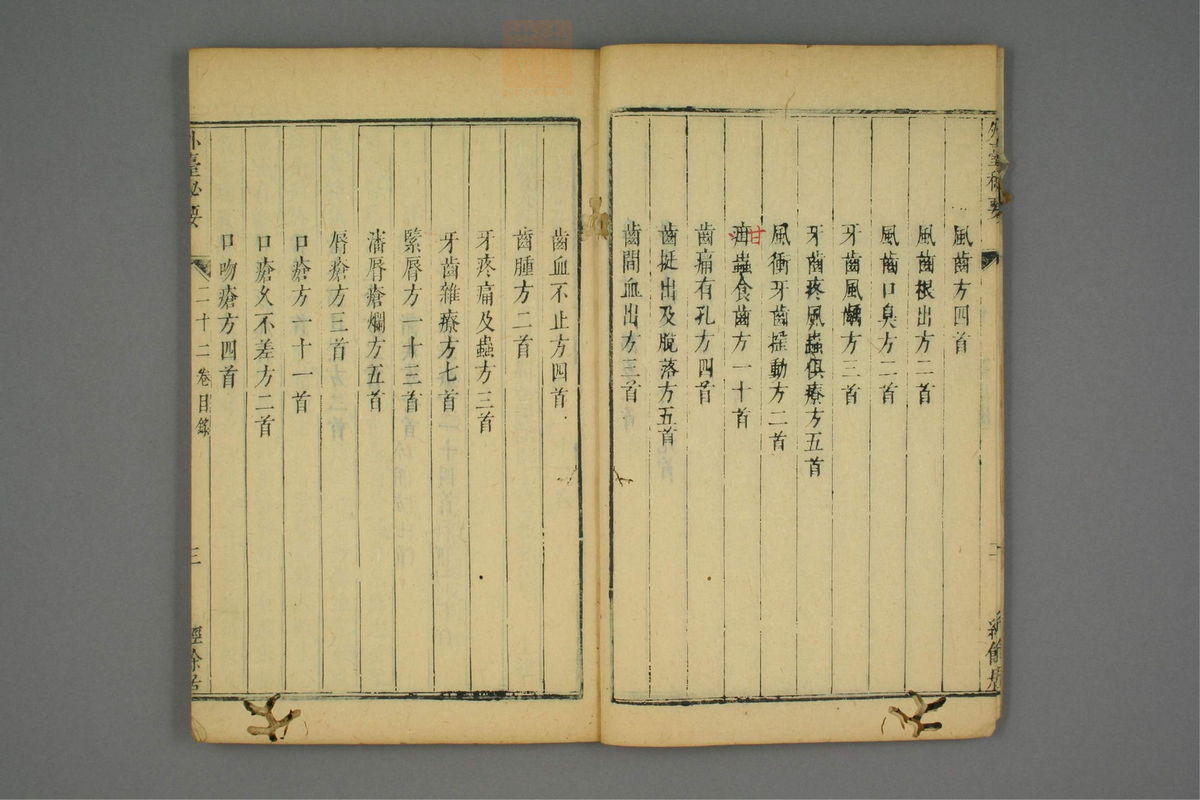 外臺秘要
風齒方四首
風齒根出方二首
風齒口臭方二首
牙齒風齲方三首
牙齒疼風蟲俱療方五首
風衝牙齒搖動方二首
疳蟲食齒方一十首
甘
齒痛有孔方四首
齒挺出及脫落方五首
齒間血出方三首
齒血不止方四首
齒腫方二首
牙疼痛及蟲方三首
牙齒雜療方七首
緊脣方一十三首
瀋脣瘡爛方五首
脣瘡方三首
口瘡方一十一首
口瘡久不差方二首
口吻瘡方四首
外臺秘要 二十二卷目錄 三 經餘居